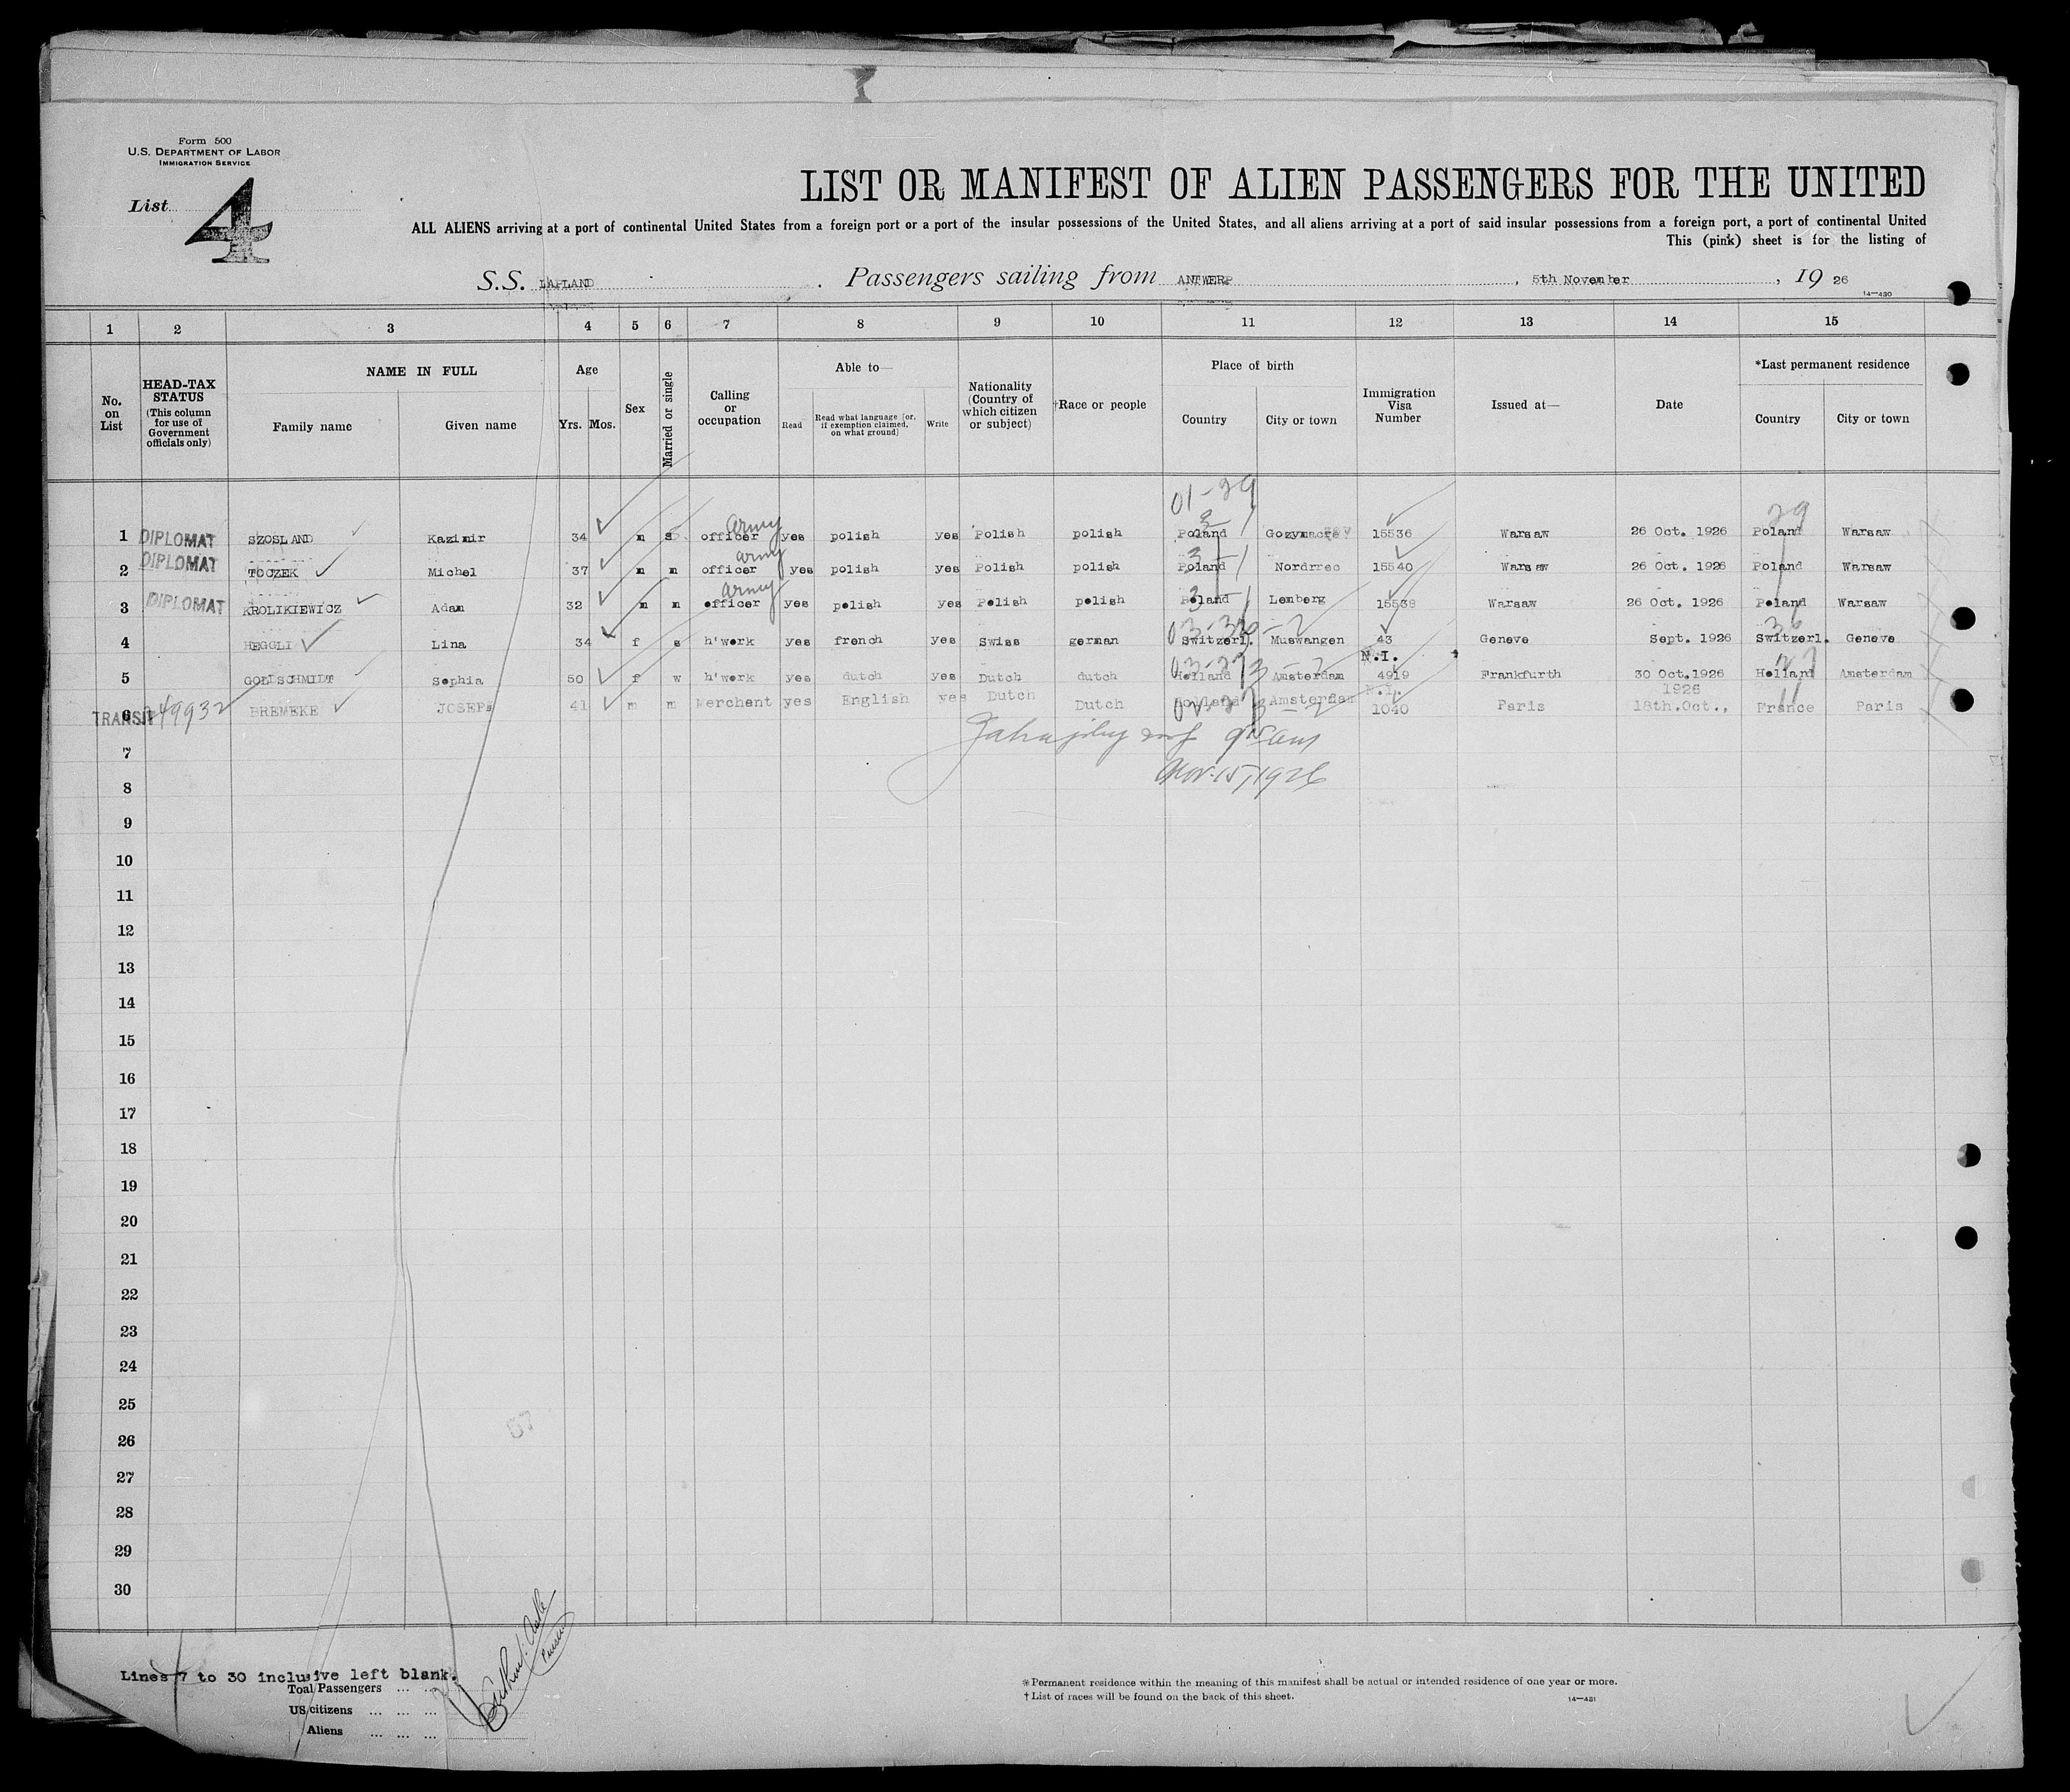 Form 500
U.S. DEPARTMENT OF LABOR
IMMIGRATION SERVICE
List 4
LIST OR MANIFEST OF ALIEN PASSENGERS FOR THE UNITED
ALL ALIENS arriving at a port of continental United States from a foreign port or a port of the insular possessions of the United States, and all aliens arriving at a port of said insular possessions from a foreign port, a port of continental United
This (pink) sheet is for the listing of
S.S. LAPLAND . Passengers sailing from ANTWERP , 5th November , 19 26
14—430
1 2 3 4 5 6 7 8 9 10 11 12 13 14 15
No. on List
HEAD-TAX STATUS (This column for use of Government officials only)
NAME IN FULL
Family name Given name
Age
Yrs. Mos.
Sex
Married or single
Calling or occupation
Able to—
Read Read what language (or, if exemption claimed, on what ground) Write
Nationality (Country of which citizen or subject)
†Race or people
Place of birth
Country City or town
Immigration Visa Number
Issued at—
Date
*Last permanent residence
Country City or town
01-29 29
1 DIPLOMAT SZOSLAND Kazimir 34 m s officer army yes polish yes Polish polish Poland 15536 Warsaw 26 Oct. 1926 Poland Warsaw
2 DIPLOMAT TOCZEK Michel 37 m m officer army yes polish yes Polish polish Poland Nordrrec 15540 Warsaw 26 Oct. 1926 Poland Warsaw
3 DIPLOMAT KROLIKIEWICZ Adam 32 m m officer army yes polish yes Polish polish Poland Lemberg 15538 Warsaw 26 Oct. 1926 Poland Warsaw
4 HEGOLI Lina 34 f s h'work yes french yes Swiss german Switzerl. Muswangen 43 Geneve Sept. 1926 Switzerl. Geneve
N.I.
5 GOLDSCHMIDT Sophia 50 f w h'work yes dutch yes Dutch dutch Holland Amsterdam 4919 Frankfurth 30 Oct.1926 Holland Amsterdam
N.I. 1926
6 TRANSIT 49932 BREMEKE JOSEPs 41 m m Merchant yes English yes Dutch Dutch Holland Amsterdam 1040 Paris 18th.Oct., France Paris
7
Nov. 15, 1926
8
9
10
11
12
13
14
15
16
17
18
19
20
21
22
23
24
25
57
26
27
28
29
30
Lines 7 to 30 inclusive left blank.
Toal Passengers ... ...
US citizens ... ... ...
Aliens ... ... ...
Purser
*Permanent residence within the meaning of this manifest shall be actual or intended residence of one year or more.
†List of races will be found on the back of this sheet.
14—431